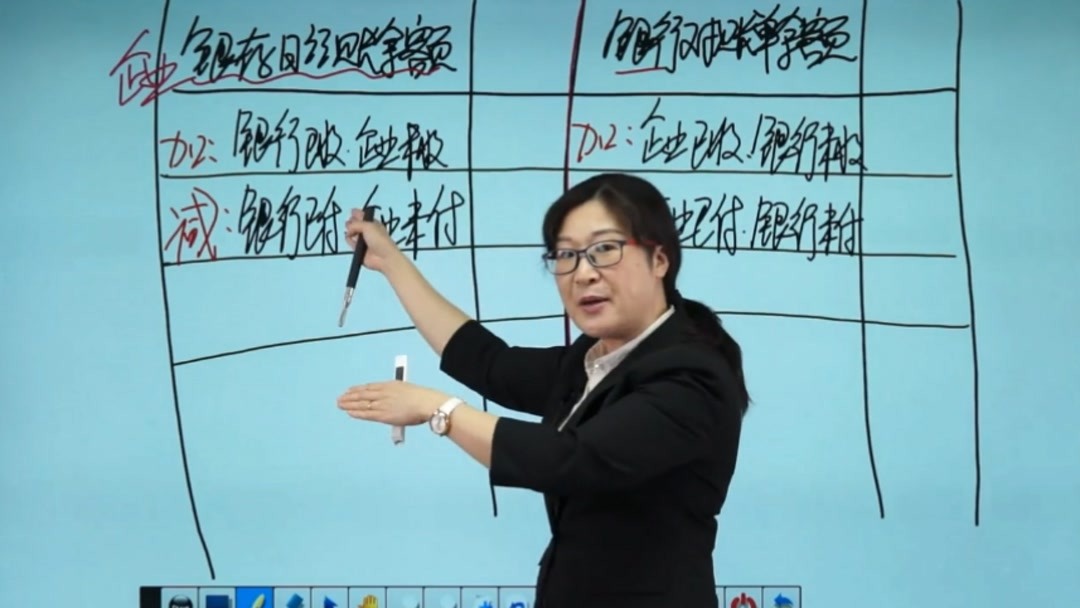 企业 银存日记账余额
银行对账单余额
加：银行已收.企业未收
加：企业已收.银行未收
减：银行已付.企业未付
业已付.银行未付